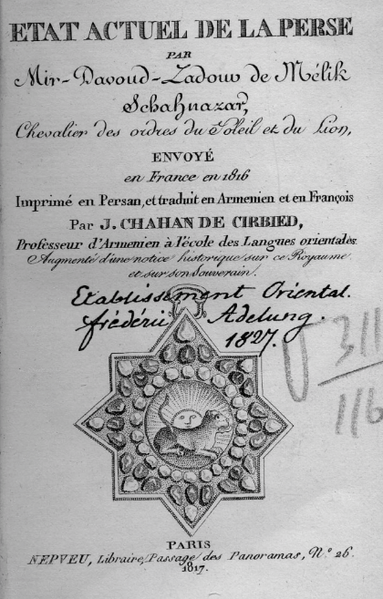 ETAT ACTUEL DE LA PERSE
PAR
Mir-Davoud-Zadour de Mélik
Schahnazar,
Chevalier des ordres du Soleil et du Lion,
ENVOYÉ
en France en 1816
Imprimé en Persan, et traduit en Armenien et en François
Par J. CHAHAN DE CIRBIED,
Professeur d'Armenien à l'école des Langues orientales
Augmenté d'une notice historique sur ce Royaume
et sur son Souverain.
Etablissement Oriental.
frédéric Adelung.
1827.
311
116
PARIS
NEPVEU, Libraire, Passage des Panoramas, N.º 26.
1817.